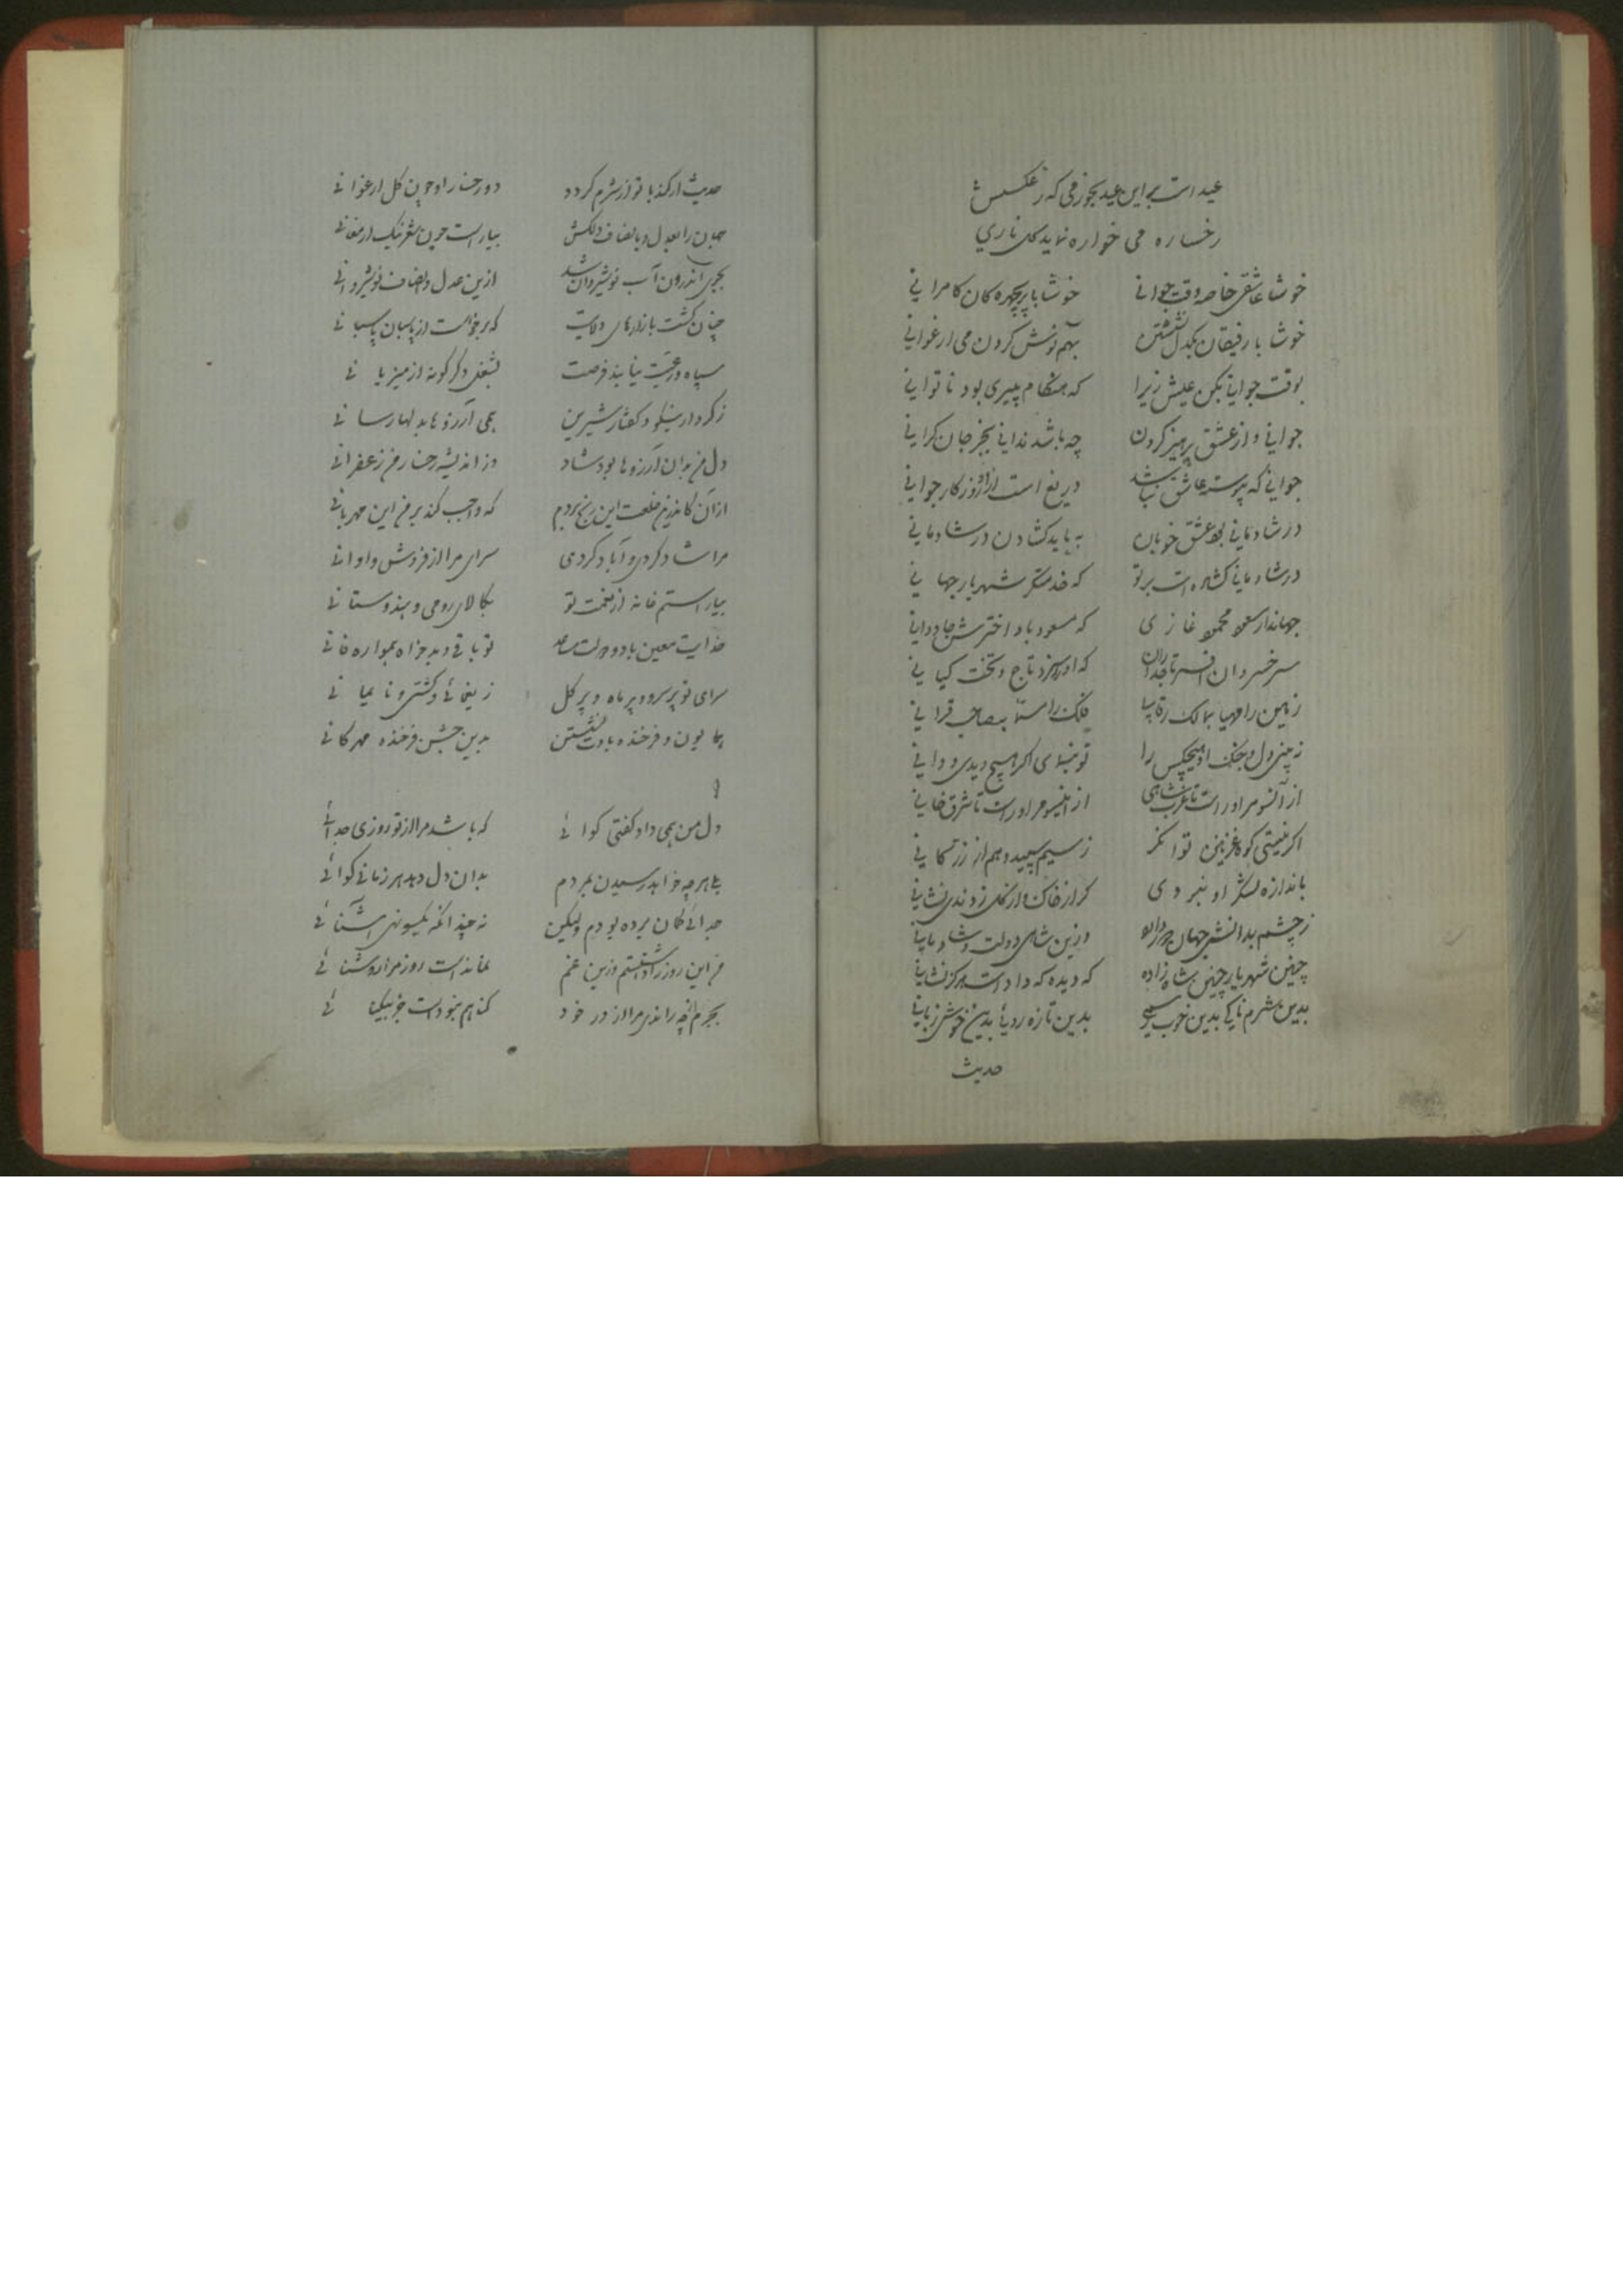 عید است برین عید بجوز می که ز عکسش
رخساره می خواره نماید گل ناری
خوشا عاشقی خاصه وقت جوانی خوشا با پریچهرگان کامرانی
خوشا با رفیقان یکدل نشستن بهم نوش کردن می ارغوانی
بوقت جوانی بکن عیش زیرا که هنگام پیری بود ناتوانی
جوانی و از عشق پرهیز کردن چه باشد ندانی بجز جان گرانی
جوانی که پیوسته عاشق نباشد دریغ است ازو روزگار جوانی
در شادمانی بود عشق خوبان بباید گشادن در شادمانی
در شادمانی گشاده است بر تو که خدمتگر شهریار جهانی
جهاندار مسعود محمود غازی که مسعود باد اخترش جاودانی
سر خسروان افسر تاجداران که او را سزد تاج و تخت کیانی
زمین را مهیا بمالک رقابی فلک را بصاحب قرانی
ز چینی دل و جنگ او هیچکس را تو بنمای اگر هیچ دیدی و دانی
از آنسو مر او راست تا غرب شاهی از اینسو مر او راست تا شرق خانی
اگر نیستی کوه غزنین توانگر ز سیم سپید و هم از زر کانی
باندازه لشکر او نبودی گر از خاک و از گل زدندی نشانی
ز چشم بدانش جهان وزین شاهی و دولت و شادمانی
چنین شهریار چنین شاهزاده که دیده که داد است هرگز نشانی
بدین شرمناکی بدین خوب رسمی بدین تازه روئی بدین خوش زبانی
حدیث
حدیث ار کند با تو از شرم گردد دو رخسار او چون گل ارغوانی
جهان را بعدل و بانصاف دلکش بیاراست چون نیک ارمغانی
بجوی اندرون آب نوشیروان شد ازین عدل و انصاف نوشیروانی
چنان گشت بازارهای ولایت که برخواست از پاسبان پاسبانی
سپاه و رعیت نیابند فرصت بشغل دگر گونه از میزبانی
ز کردار نیکو و گفتار شیرین همی آرزوها بدلها رسانی
دل من بدان آرزوها بود شاد وز اندیشه رخسار من زعفرانی
از آن کاندرین خلعت این رنج بردم که واجب کند بر من این مهربانی
مرا شاد کردی و آباد کردی سرای مرا از فروش و اوانی
بیاراستم خانه از نعمت تو بکالای رومی و هندوستانی
خدایت معین باد و دولت مساعد تو باقی و بدخواه همواره فانی
سرای تو پر سرو و پر ماه و پر گل ز یغمائی و کشتی و نایمانی
همایون و فرخنده بادت نشستن بدین جشن فرخنده مهرگانی
دل من همی داد گفتی گوائی که باشد مرا از تو روزی جدائی
بلی هرچه خواهد رسیدن بمردم بدان دل دهد هر زمانی گوائی
جدائی گمان برده بودم ولیکن نه چندانکه یکسو نهی آشنائی
من این روز را داشتم وزین غم نماند است روز مرا روشنائی
بجرم چه راندی مرا از در خود گناهم نبود است جز بیگناهی